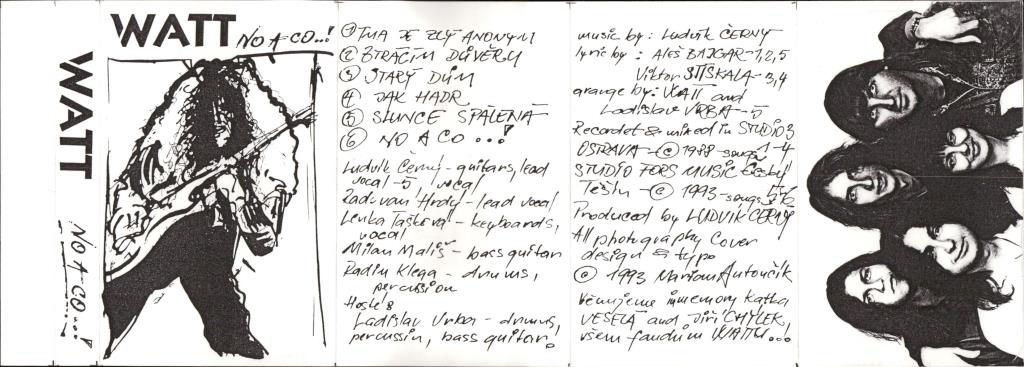 WATT
NO A CO...!
WATT
NO A CO...!
① JMA JE ZLÝ ANONYM
② ZTRÁCÍM DŮVĚRU
③ STARÝ DŮM
④ JAK HADR
⑤ SLUNCE SPÁLENÁ
⑥ NO A CO...!
Ludvík Černý - guitars, lead
vocal - 5, vocal
Radovan Hrdý - lead vocal
Lenka Tašková - keyboards,
vocal
Milan Mališ - bass guitar
Radim Klega - drums,
percussion
Host's
Ladislav Vrba - drums,
percussin, bass guitar.
music by: Ludvík ČERNÝ
lyric by: Aleš BAJGAR - 1,2,5
Viktor SITŠKALA - 3,4
arange by: WATT and
Ladislav VRBA - 5
Recordet & mixed in STUDIO 3
OSTRAVA - © 1988 - songs 1-4
STUDIO FORS MUSIC Český
Těšín - © 1993 - songs 5,6
Produced by LUDVÍK ČERNÝ
All photography cover
design & typo
© 1993 Marian Autoučik
Věnujeme inmemory Katka
VESELÁ and Jiří CHÝLEK,
všem fandům WATTU...